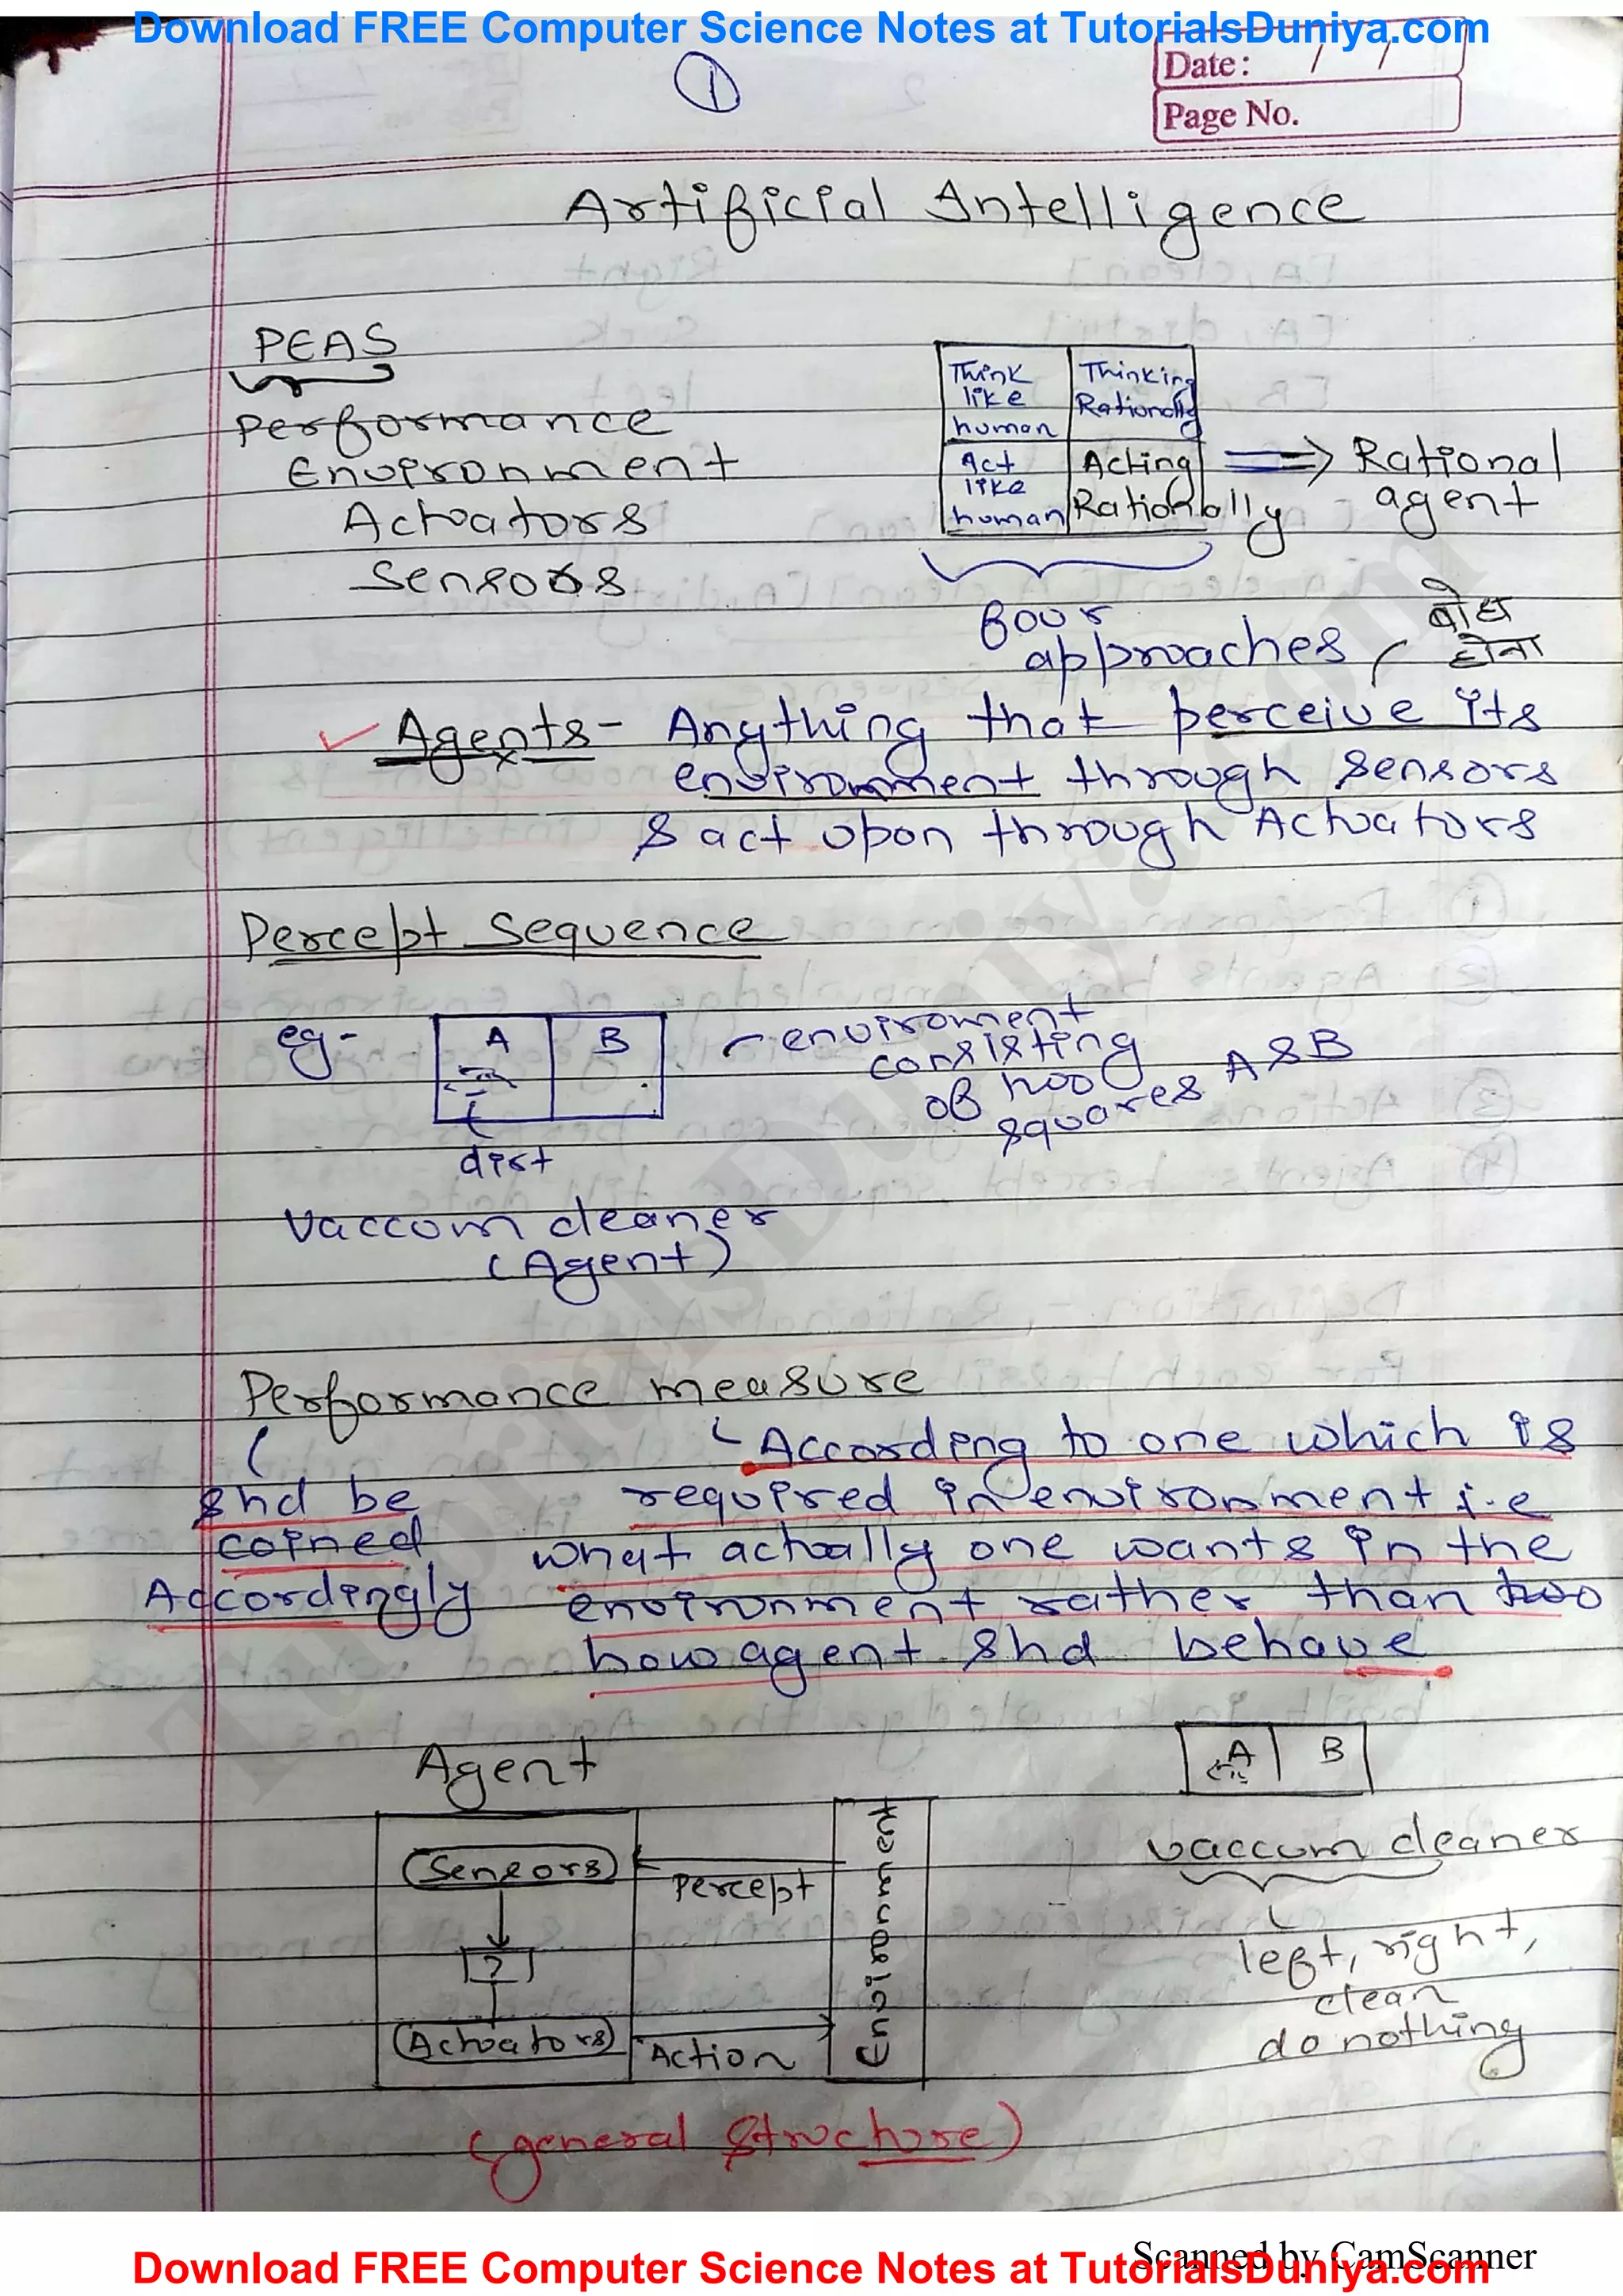 Download FREE Computer Science Notes at TutorialsDuniya.com
1
Date: / /
Page No.
Artificial Intelligence
PEAS
Performance
Environment
Actuators
Sensors
Think like human
Thinking Rationally
Act like human
Acting Rationally
⇒ Rational agent
four approaches
बोध होना
Agents - Anything that perceive its
environment through sensors
& act upon through Actuators
Percept Sequence
eg-
A B
dirt
enviroment
consisting
of two
squares A & B
vaccum cleaner
(Agent)
Performance measure
shd be
coined
Accordingly
According to one which is
required in environment i.e
what actually one wants in the
environment rather than
how agent shd behave
Agent
Sensors
?
Actuators
Percept
Action
Environment
A B
vaccum cleaner
left, right,
clean
do nothing
(general structure)
TutorialsDuniya.com
Scanned by CamScanner
Download FREE Computer Science Notes at TutorialsDuniya.com